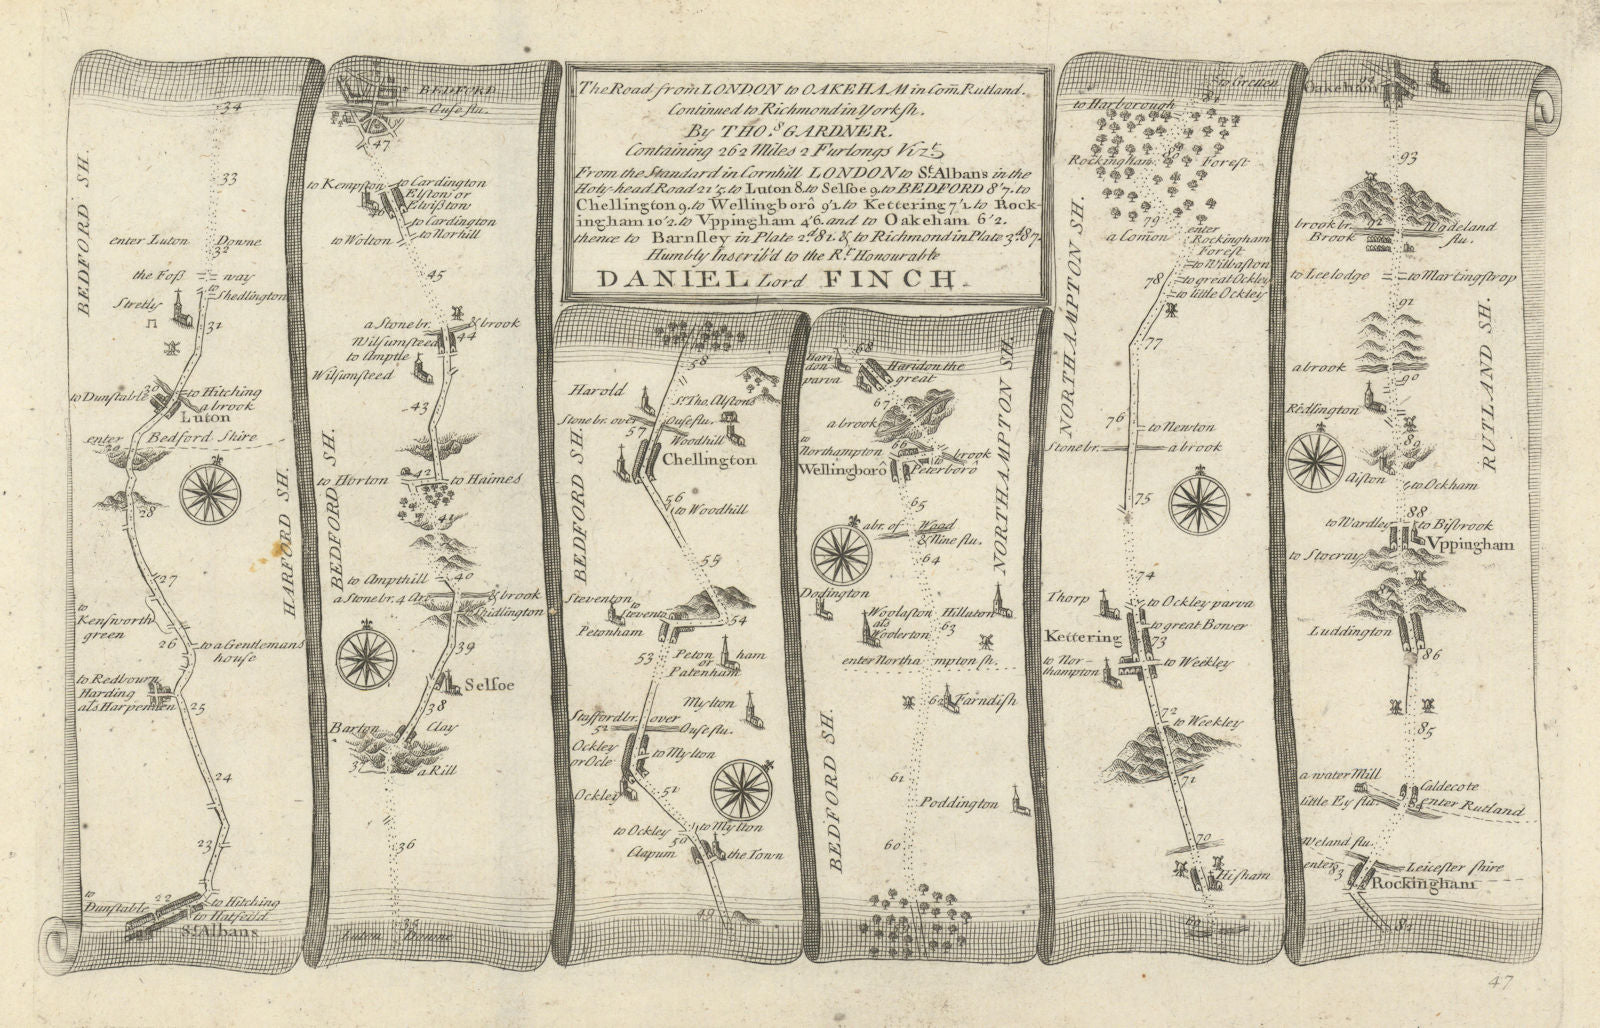 The Road from LONDON to OAKEHAM in Com. Rutland.
Continued to Richmond in Yorksh.
By THO.S GARDNER.
Containing 262 Miles 2 Furlongs Vizt.
From the Standard in Cornhill LONDON to St. Albans in the
Holy-head Road 21'5. to Luton 8. to Selsoe 9. to BEDFORD 8'7. to
Chellington 9. to Wellingborô 9'1. to Kettering 7'1. to Rock-
ingham 10'2. to Vppingham 4'6. and to Oakeham 6'2.
thence to Barnsley in Plate 2d. 81. & to Richmond in Plate 3d. 87.
Humbly Inscrib'd to the Rt. Honourable
DANIEL Lord FINCH.
34
BEDFORD SH.
33
enter Luton
Downe
32
the Foß
way
to
Shedlington
Stretly
31
30
to Dunstable
to Hitching
a brook
Luton
enter
Bedford Shire
HARFORD SH.
28
27
to
Kensworth
green
26
to a Gentlemans
house
to Redbourn
Harding
als Harpenden
25
24
23
to
Dunstable
22
to Hitching
to Hatfeild
St. Albans
BEDFORD
Ouse flu.
47
to Kempston
to Cardington
Elston or
Elwiston
46
to Cardington
to Norhill
to Wolton
45
a Stone br.
& brook
Wilsumsteed
44
to Amptle
Wilsumsteed
43
BEDFORD SH.
42
to Horton
to Haines
41
to Ampthill
40
a Stone br. 4 Arc
& brook
to Shidlington
39
Selsoe
38
Barton
Clay
37
a Rill
36
35
Luton
Downe
58
Harold
St. Tho. Alstons
Stone br. over
Ouse flu.
57
Woodhill
Chellington
BEDFORD SH.
56
to Woodhill
55
Steventon
to
Stevento
54
Petonham
53
Peton ham
or
Patenham
Mylton
Staffordbr. over
52
Ouse flu.
Ockley
or Ocle
to Mylton
Ockley
51
to Ockley
to Mylton
50
Clapum
the Town
49
68
Hari
don
parva
Haridon the
great
67
a brook
to
Northampton
66
brook
Wellingborô
to
Peterborô
NORTHAMPTON SH.
65
a br. of
Wood
& Nine flu.
64
Dodington
Woolaston
als
Woolerton
Hilluton
63
enter Northa mpton sh.
62
Farndish
BEDFORD SH.
61
Poddington
60
to Gretten
81
to Harborough
80
Rockingham
Forest
79
a Comon
enter
Rockingham
Forest
to Wilbaston
78
to great Ockley
to little Ockley
NORTHAMPTON SH.
77
76
to Newton
Stone br.
a brook
75
74
Thorp
to Ockley parva
to great Bower
Kettering
73
to Nor-
thampton
to Weekley
72
to Weekley
71
70
Hisham
69
Oakeham
94
93
brook br.
92
Wodeland
flu.
Brook
to Leelodge
to Martinsthrop
91
RUTLAND SH.
a brook
90
Redlington
89
Aiston
to Ockham
88
to Wardley
to Bisbrook
Vppingham
to Stocray
Luddington
86
85
a water Mill
Caldecote
little Ey flu.
84
enter Rutland
Weland flu.
enter
83
Leicester shire
Rockingham
82
47